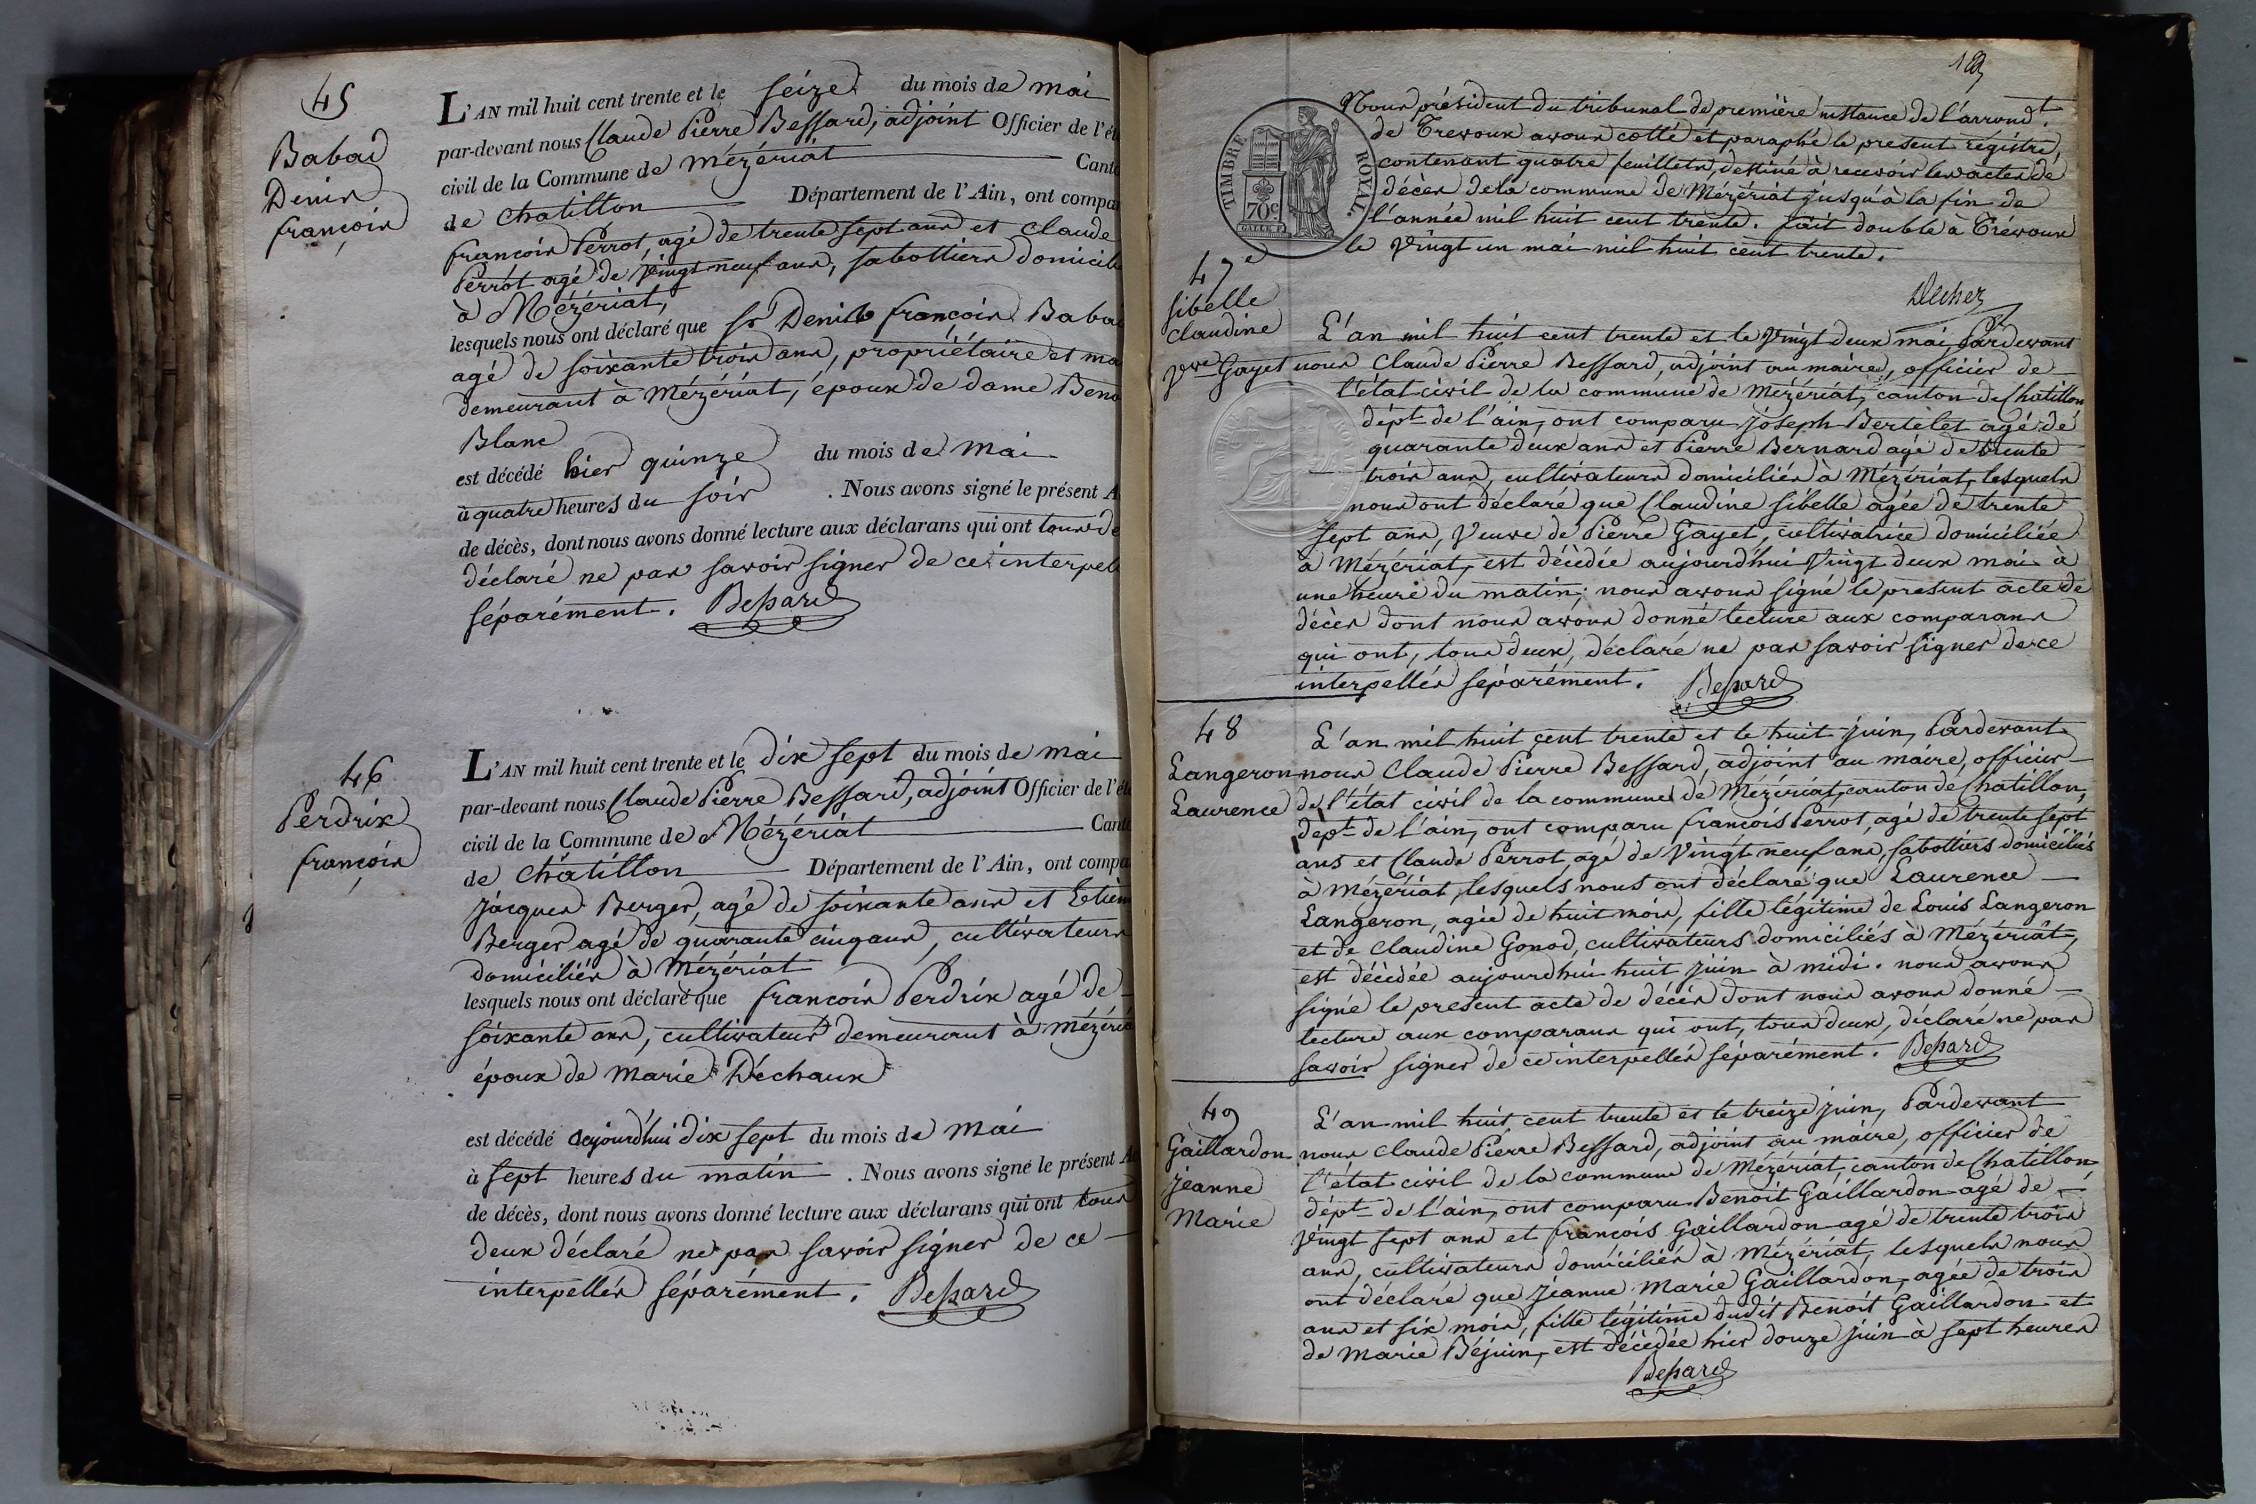 45
Babad
Denis
françois
L'AN mil huit cent trente et le seize du mois de mai
par-devant nous Claude Pierre Bessard, adjoint Officier de l'ét
civil de la Commune de Mézériat Canto
de Chatillon Département de l'Ain, ont compar
françois Perrot, agé de trente sept ans et Claude
Perrot agé de Vingt neuf ans, sabottiers domicili
à Mézériat,
lesquels nous ont déclaré que Sr Denis françois Babad
agé de soixante trois ans, propriétaire et ma
demeurant à Mézériat, époux de dame Beno
Blanc
est décédé hier quinze du mois de mai
à quatre heures du soir . Nous avons signé le présent A
de décès, dont nous avons donné lecture aux déclarans qui ont tous de
déclaré ne pas savoir signer de ce interpell
séparément. Bessard
46
Perdrix
françois
L'AN mil huit cent trente et le dix sept du mois de mai
par-devant nous Claude Pierre Bessard, adjoint Officier de l'éta
civil de la Commune de Mézériat Canto
de Chatillon Département de l'Ain, ont compa
Jacques Berger, agé de soixante ans et Etien
Berger agé de quarante cinq ans, cultivateurs
domiciliés à Mézériat
lesquels nous ont déclaré que françois Perdrix agé de
soixante ans, cultivateur demeurant à Mézéria
époux de Marie Déchaux
est décédé aujourd'hui dix sept du mois de mai
à sept heures du matin . Nous avons signé le présent Ac
de décès, dont nous avons donné lecture aux déclarans qui ont tous
deux déclaré ne pas savoir signer de ce
interpellés séparément. Bessard
Nous président du tribunal de première instance de l'arrondt.
de Trevoux avons cotté et paraphé le present régistre,
contenant quatre feuillets, destiné à recevoir les actes de
décès de la commune de Mézériat jusqu'à la fin de
l'année mil huit cent trente. fait double à Trévoux
le Vingt un mai mil huit cent trente.
TIMBRE ROYAL.
70c
47e
Sibelle
Claudine
Vve Gayet
L'an mil huit cent trente et le Vingt deux mai, Pardevant
nous Claude Pierre Bessard, adjoint au maire, officier de
l'état civil de la commune de Mézériat, canton de Chatillon
dépt de l'ain, ont comparu Joseph Bertelet agé de
quarante deux ans et Pierre Bernard agé de trente
trois ans, cultivateurs domiciliés à Mézériat, lesquels
nous ont déclaré que Claudine Sibelle agée de trente
sept ans, Veuve de Pierre Gayet, cultivatrice domiciliée
à Mézériat, est décèdée aujourd'hui Vingt deux mai à
une heure du matin; nous avons signé le present acte de
décès dont nous avons donné lecture aux comparans
qui ont, tous deux, déclaré ne pas savoir signer de ce
interpellés séparément. Bessard
48
Langeron
Laurence
L'an mil huit cent trente et le huit juin, Pardevant
nous Claude Pierre Bessard, adjoint au maire, officier
de l'état civil de la commune de Mézériat, canton de Chatillon,
dépt de l'ain, ont comparu françois Perrot, agé de trente sept
ans et Claude Perrot, agé de Vingt neuf ans, sabottiers domiciliés
à Mézériat, lesquels nous ont déclaré que Laurence
Langeron, agée de huit mois, fille légitime de Louis Langeron
et de Claudine Gonod, cultivateurs domiciliés à Mézériat,
est décèdée aujourd'hui huit juin à midi. nous avons
signé le present acte de décès dont nous avons donné
lecture aux comparans qui ont, tous deux, déclaré ne pas
savoir signer de ce interpellés séparément. Bessard
49
Gaillardon
Jeanne
Marie
L'an mil huit cent trente et le treize juin, Pardevant
nous Claude Pierre Bessard, adjoint au maire, officier de
l'état civil de la commune de Mézériat, canton de Chatillon
dépt de l'ain, ont comparu Benoit Gaillardon agé de
Vingt sept ans et françois Gaillardon agé de trente trois
ans, cultivateurs domiciliés à Mézériat, lesquels nous
ont déclaré que Jeanne Marie Gaillardon, agée de trois
ans et six mois, fille légitime dudit Benoit Gaillardon et
de Marie Béjuin, est décèdée hier douze juin à sept heures
Bessard